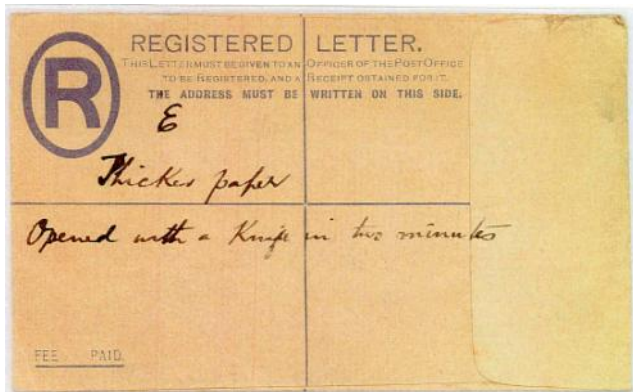 REGISTERED LETTER.
THIS LETTER MUST BE GIVEN TO AN OFFICER OF THE POST OFFICE
TO BE REGISTERED, AND A RECEIPT OBTAINED FOR IT.
THE ADDRESS MUST BE WRITTEN ON THIS SIDE.
R
E
Thicker paper
Opened with a Knife in two minutes
FEE PAID.